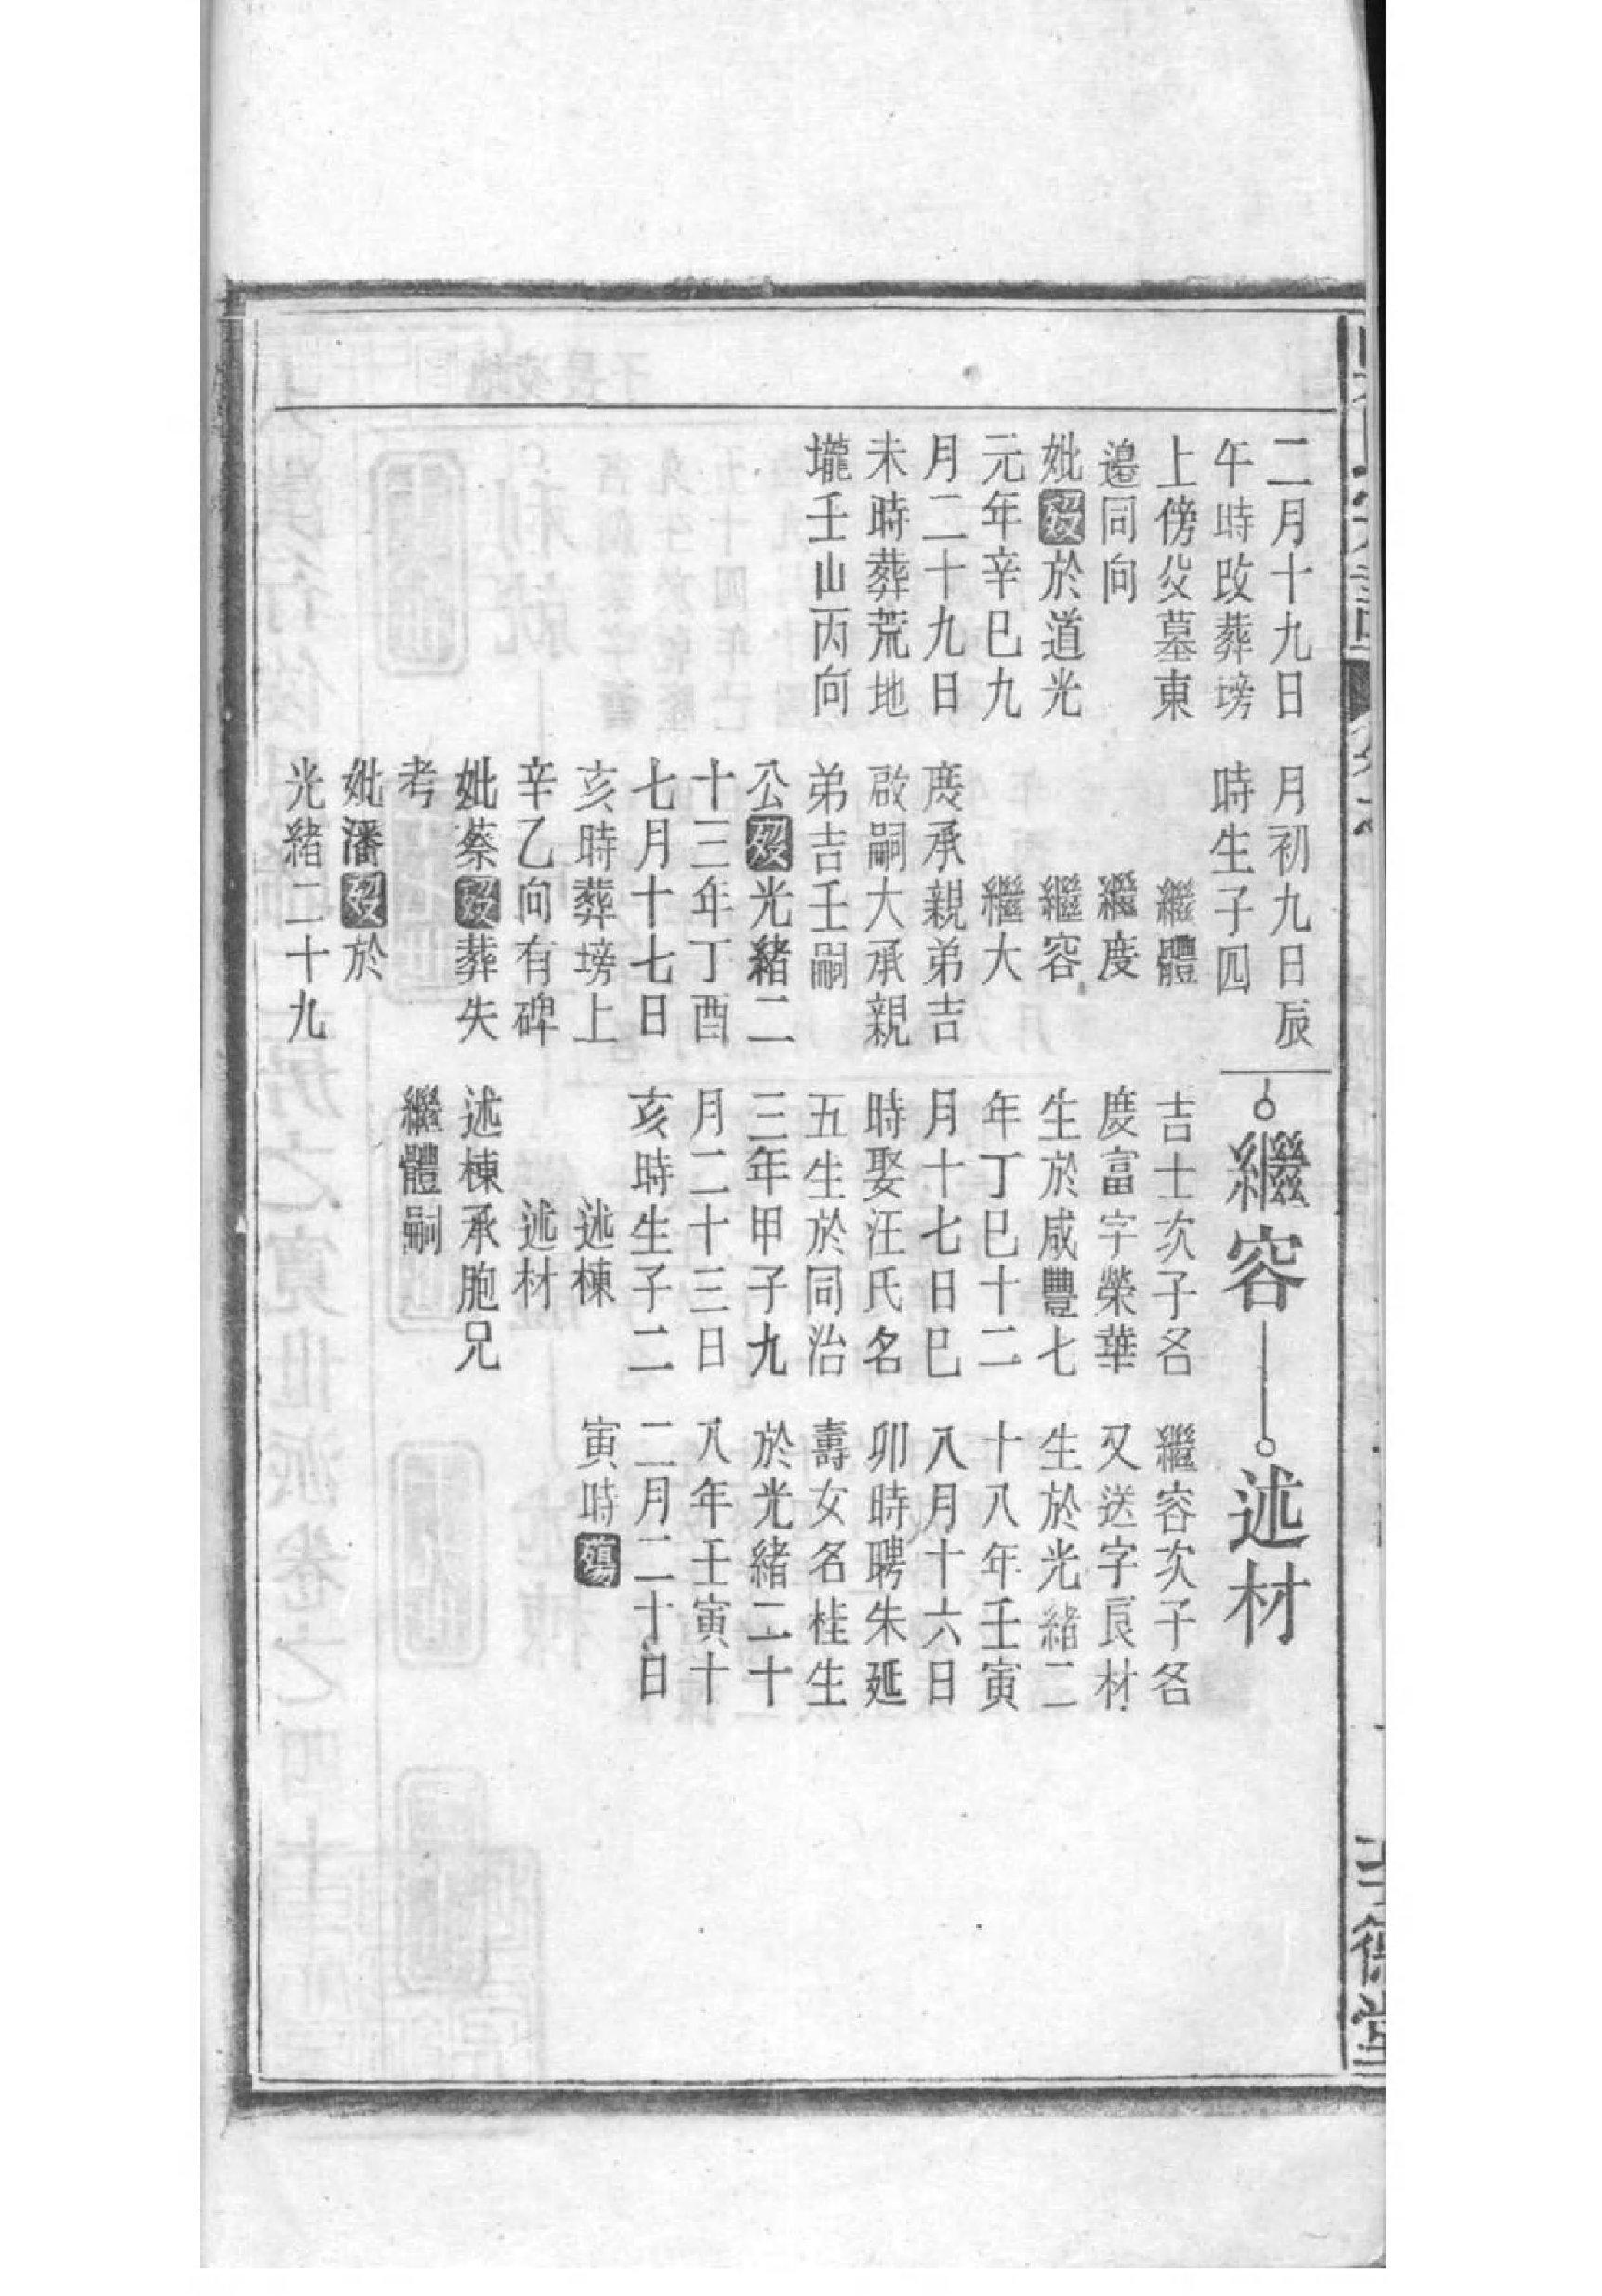 二月十九日
午時改葬塝
上傍父墓東
邉同向
妣歿於道光
元年辛巳九
月二十九日
未時葬荒地
壠壬山丙向
月初九日辰
時生子四
繼體
繼度
繼容
繼大
度承親弟吉
啟嗣大承親
弟吉壬嗣
公歿光緒二
十三年丁酉
七月十七日
亥時葬塝上
辛乙向有碑
妣蔡歿葬失
考
妣潘歿於
光緒二十九
繼容
吉士次子名
慶富字榮華
生於咸豐七
年丁巳十二
月十七日巳
時娶汪氏名
五生於同治
三年甲子九
月二十三日
亥時生子二
述棟
述材
述棟承胞兄
繼體嗣
述材
繼容次子名
又送字良材
生於光緒二
十八年壬寅
八月十六日
卯時聘朱延
壽女名桂生
於光緒二十
八年壬寅十
二月二十日
寅時殤